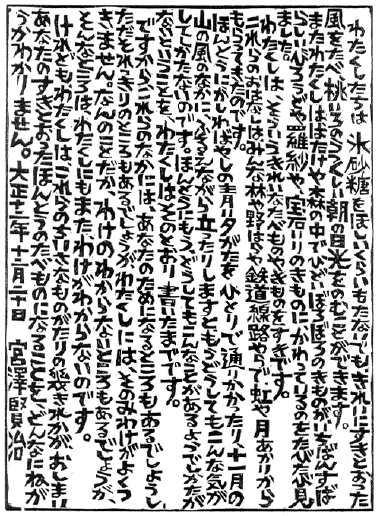 わたくしたちは、氷砂糖をほしいくらいもたないでも、きれいにすきとおった
風をたべ、桃いろのうつくしい朝の日光をのむことができます。
またわたくしは、はたけや森の中で、ひどいぼろぼろのきものが、いちばんすば
らしいびろうどや羅紗や、宝石いりのきものに、かわっているのをたびたび見
ました。
わたくしは、そういうきれいなたべものやきものをすきです。
これらのおはなしは、みんな林や野はらや鉄道線路やらで、虹や月あかりから
もらってきたのです。
ほんとうに、かしわばやしの青い夕がたを、ひとりで通りかかったり、十一月の
山の風のなかに、ふるえながら立ったりしますと、もうどうしてもこんな気が
してしかたないのです。ほんとうにもう、どうしてもこんなことがあるようでしかたが
ないということを、わたくしはそのとおり書いたまでです。
ですから、これらのなかには、あなたのためになるところもあるでしょうし、
ただそれっきりのところもあるでしょうが、わたくしには、そのみわけがよくつ
きません。なんのことだか、わけのわからないところもあるでしょうが、
そんなところは、わたくしにもまた、わけがわからないのです。
けれども、わたくしは、これらのちいさなものがたりの幾きれかが、おしまい
あなたのすきとおったほんとうのたべものになることを、どんなにねが
うかわかりません。大正十二年十二月二十日 宮澤賢治